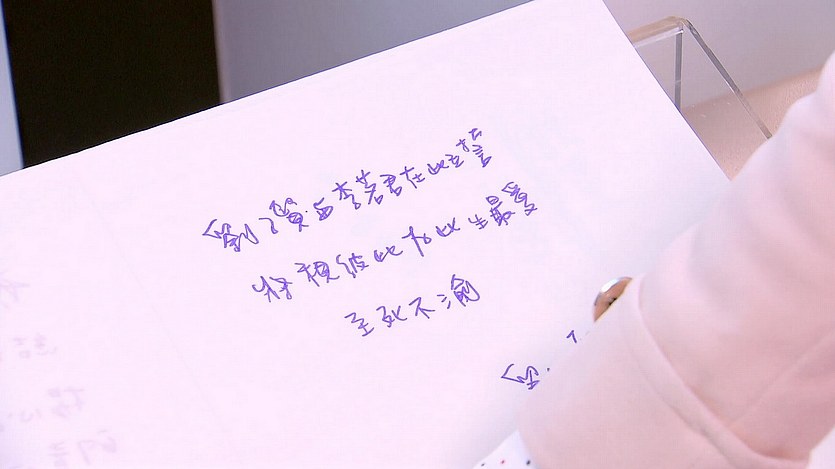 劉子賢與李若君在此立誓
將視彼此為此生最愛
至死不渝